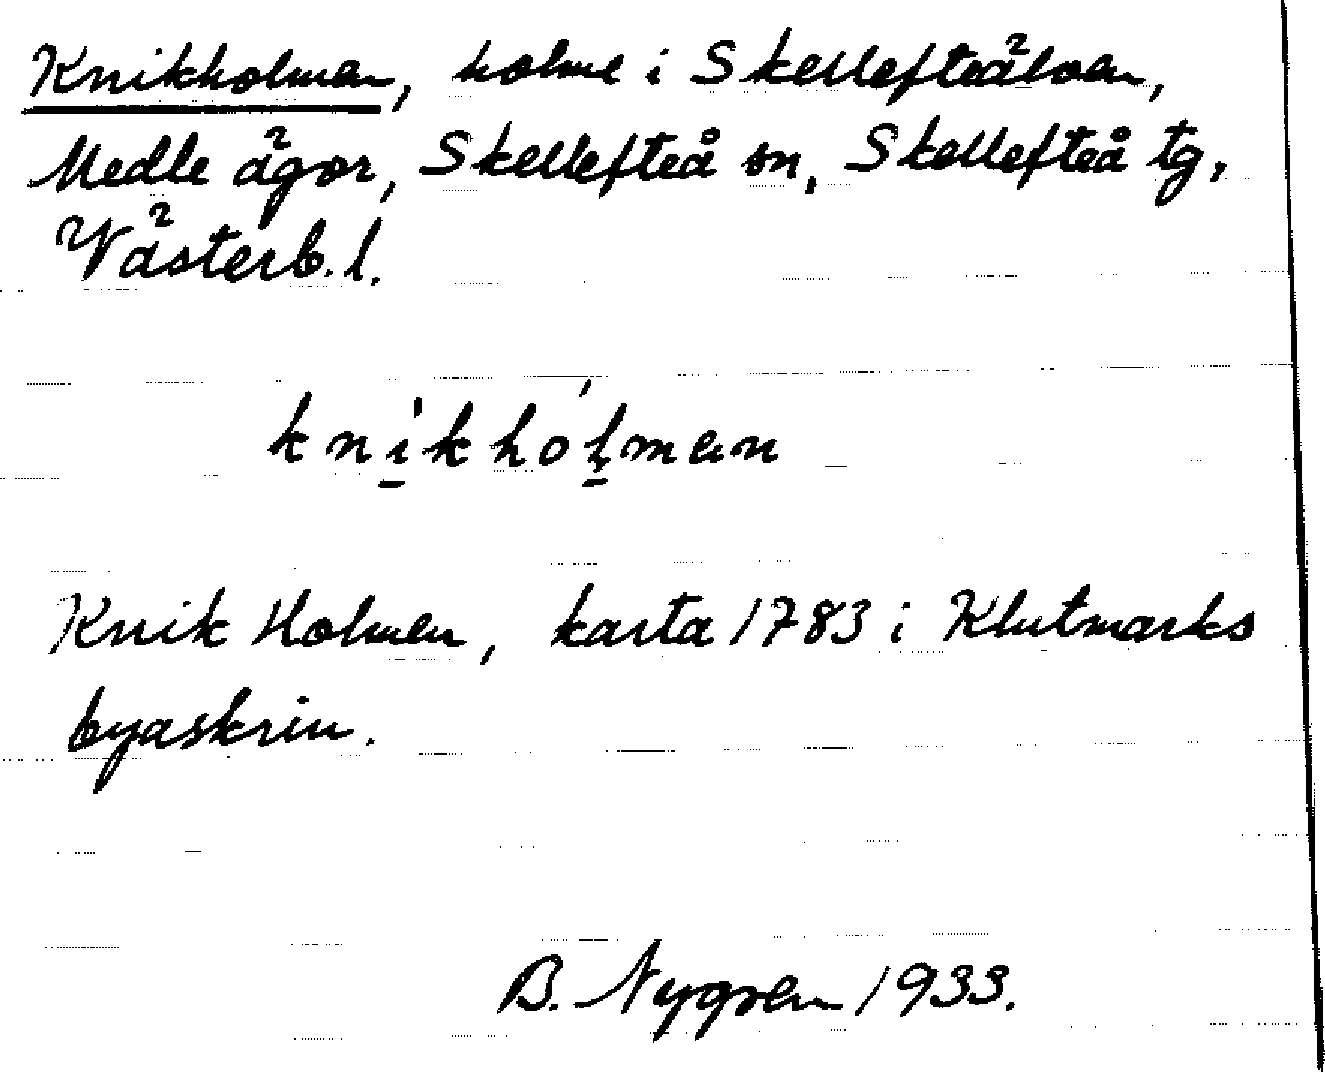 Knikholmen, holme i Skellefteälven,
Medle ägor, Skellefteå sn, Skellefteå tg,
Västerb. l.
kni̠khól̠man
Knik Holmen, karta 1783 i Klutmarks
byaskrin.
B. Nygren 1933.